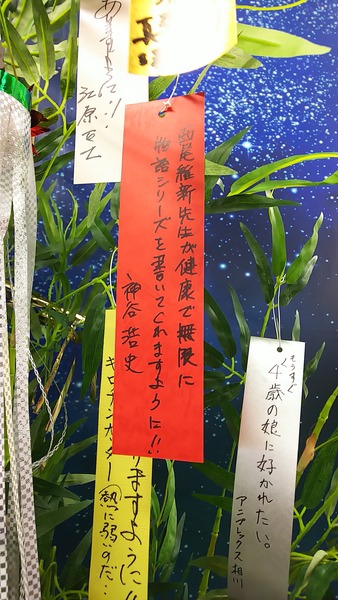 西尾維新先生が健康で無限に
物語シリーズを書いてくれますように!!
神谷浩史
もうすぐ
4歳の娘に好かれたい。
アニプレックス 相川
りますように!!
ギロチンカッター(熱に弱いのだ…
ますように!!
江原正士